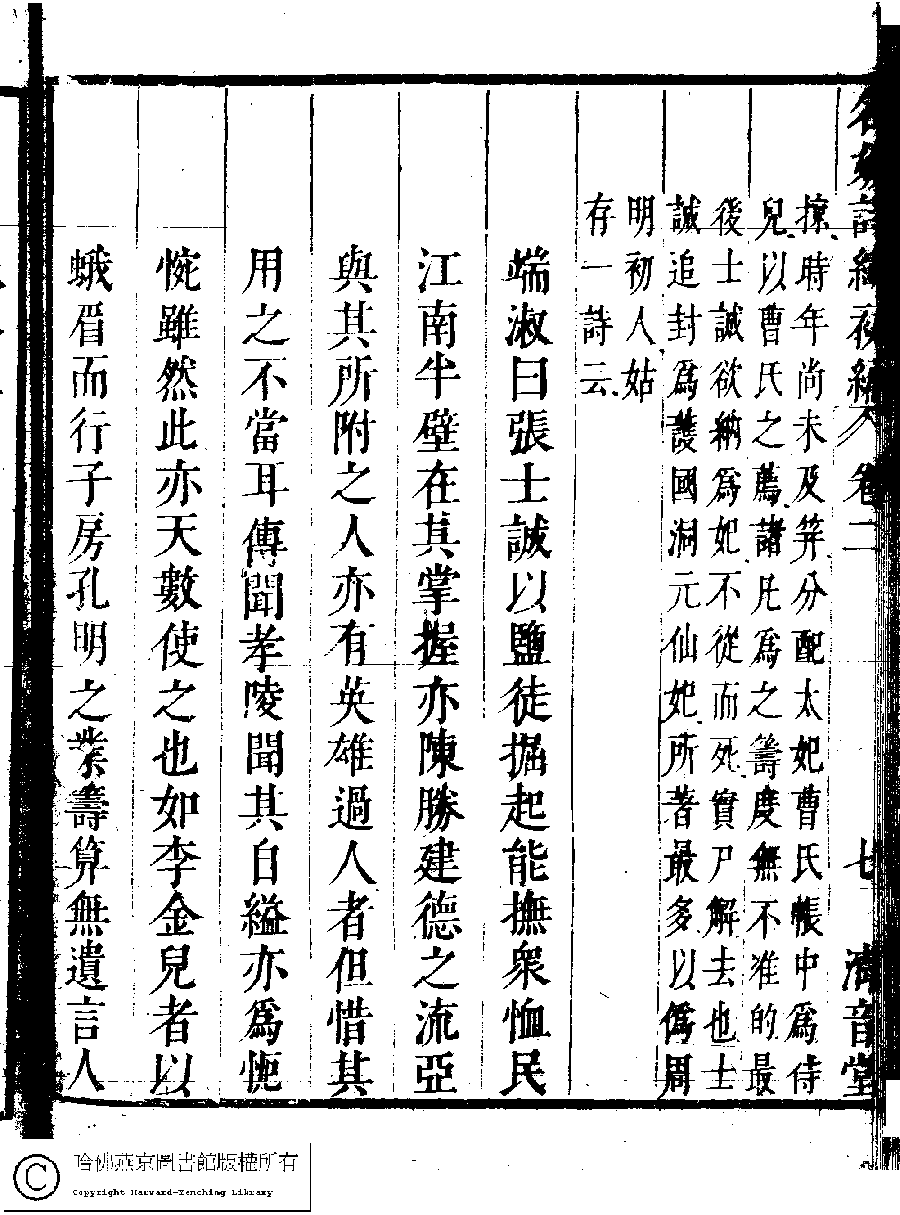 名媛詩緯初編 卷二 七 清音堂
掠時年尚未及笄分配太妃曹氏帳中爲侍
兒以曹氏之薦諸凡爲之籌度無不准的最
後士誠欲納爲妃不從而死實尸解去也士
誠追封爲護國洞元仙妃所著最多以僞周
明初人姑
存一詩云
端淑曰張士誠以鹽徒掘起能撫衆恤民
江南半壁在其掌握亦陳勝建德之流亞
與其所附之人亦有英雄過人者但惜其
用之不當耳傳聞孝陵聞其自縊亦爲怉
惋雖然此亦天數使之也如李金兒者以
蛾眉而行子房孔明之業籌算無遺言人
哈佛燕京圖書館版權所有
Copyright Harvard-Yenching Library